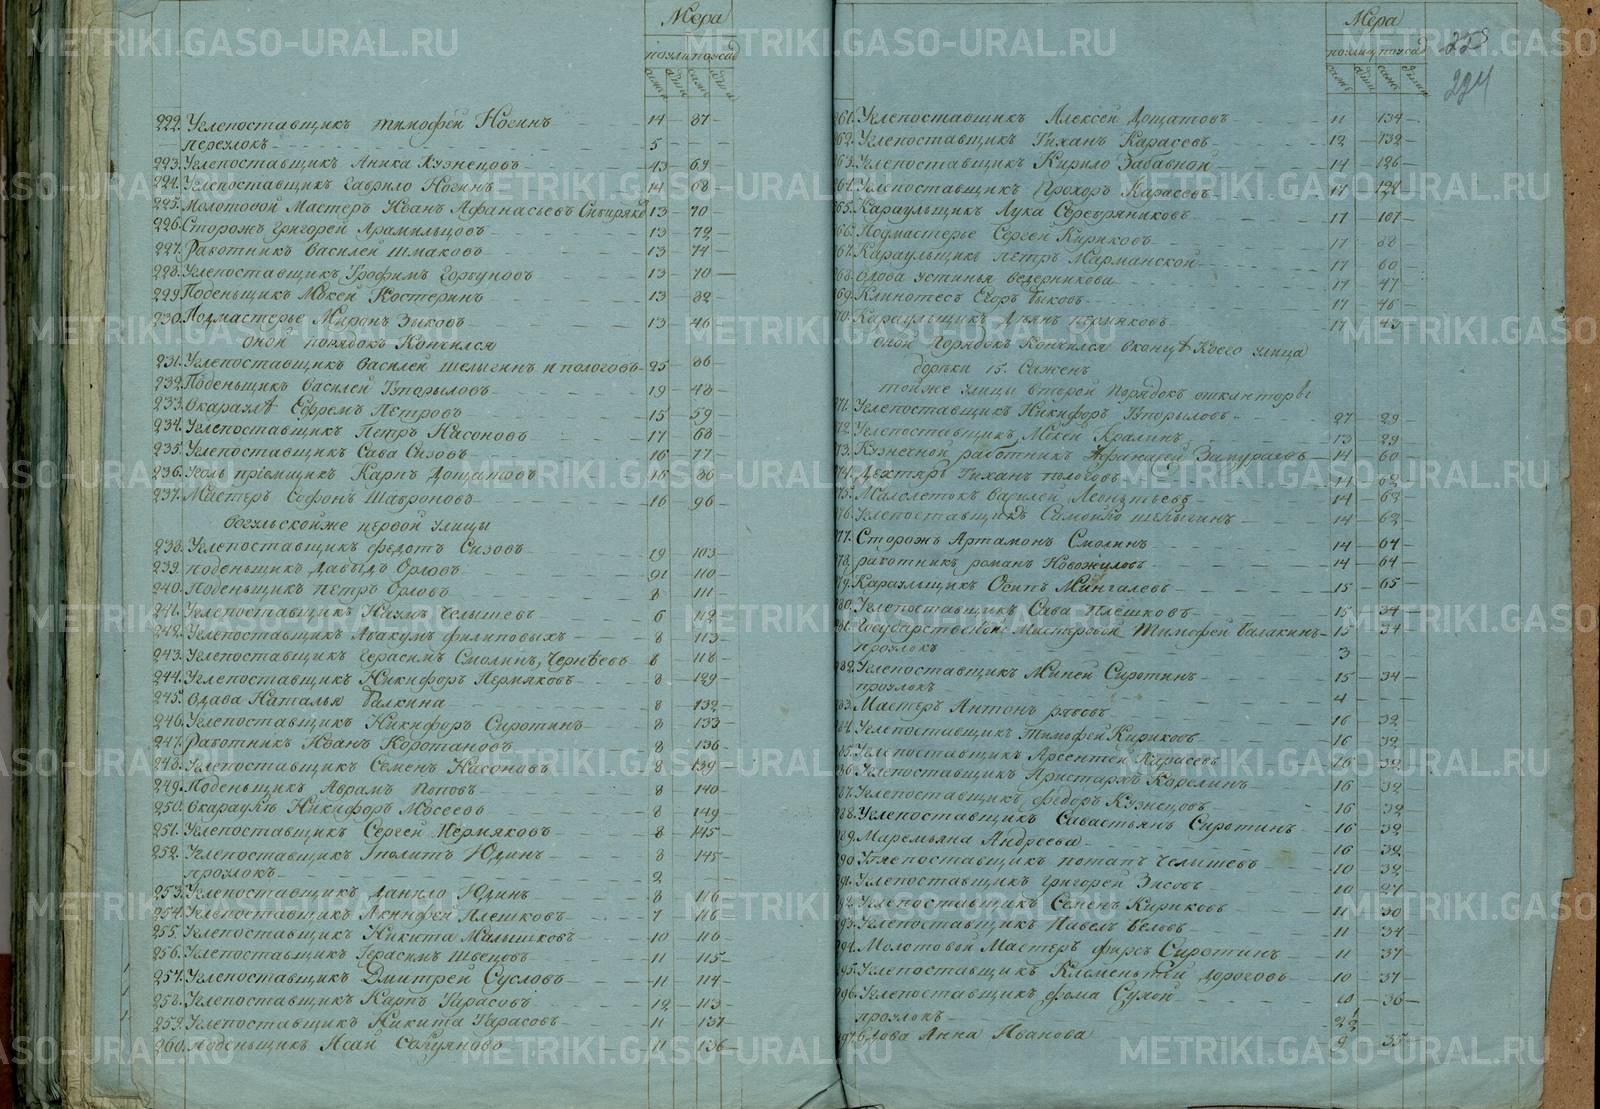 Мера
поулиц посад
саже дши саже дши
222. Углепоставщикъ тимофей Ногинъ 14 87
переулокъ 5
223. Углепоставщикъ Аника Кузнецовъ 43 69
224. Углепоставщикъ Гаврило Ногинъ 14 68
225. Молотовой Мастеръ Иванъ Афанасьевъ Сибиряко 13 70
226. Сторожъ Григорей Арамильцовъ 13 72
227. Работникъ Василей Шмаковъ 13 74
228. Углепоставщикъ Трофимъ Горбуновъ 13 70
229. Поденьщикъ Мокей Костеринъ 13 32
230. Подмастерье Миронъ Зыковъ 13 46
оной порядокъ Кончился
231. Углепоставщикъ Василей шелыгинъ и пологовъ 25 86
232. Поденьщикъ Василей Гуторыловъ 19 48
233. Вкараулѣ Ефремъ Петровъ 15 59
234. Углепоставщикъ Петръ Насоновъ 17 68
235. Углепоставщикъ Сава Сизовъ 16 77
236. Уголь пріемщикъ Карпъ Дощатовъ 16 86
237. Мастеръ Софонъ Шавроновъ 16 96
Вогульской же первой улицы
238. Углепоставщикъ федотъ Сизовъ 19 103
239. поденьщикъ Давыдъ Орловъ 91 110
240. Поденьщикъ Петръ Орловъ 8 111
241. Углепоставщикъ Наумъ Челышевъ 6 112
242. Углепоставщикъ Авакумъ филиповыхъ 8 113
243. Углепоставщикъ Герасимъ Смолинъ, Чернѣевъ 8 118
244. Углепоставщикъ Никифоръ Пермяковъ 8 129
245. Вдава Наталья Балкина 8 132
246. Углепоставщикъ Никифоръ Сиротинъ 8 133
247. Работникъ Иванъ Коротановъ 8 136
248. Углепоставщикъ Семенъ Насоновъ 8 139
249. Поденьщикъ Аврамъ Поповъ 8 140
250. Вкараулѣ Никифоръ Мосеевъ 8 149
251. Углепоставщикъ Сергей Пермяковъ 8 145
252. Углепоставщикъ Иполитъ Юдинъ 8 145
проулокъ 2
253. Углепоставщикъ Данило Юдинъ 8 116
254. Углепоставщикъ Акинфей Плешковъ 7 116
255. Углепоставщикъ Никита Малышковъ 10 116
256. Углепоставщикъ Герасимъ Швецовъ 11 115
257. Углепоставщикъ Дмитрей Сусловъ 11 114
258. Углепоставщикъ Карпъ Тарасовъ 12 113
259. Углепоставщикъ Никита Тарасовъ 11 137
260. Поденьщикъ Исай 11 136
Мера
поулиц посад
саже дши саже дши
224
261. Углепоставщикъ Алексей Дощатовъ 11 134
262. Углепоставщикъ Тиханъ Карасевъ 12 132
263. Углепоставщикъ Кирило Забавной 14 126
264. Углепоставщикъ Прохоръ Карасевъ 17 124
265. Караульщикъ Лука Серебряниковъ 17 107
266. Подмастерье Сергей Кириковъ 17 88
267. Караульщикъ Петръ Марманской 17 60
268. Вдова Устинья Ведерникова 17 47
269. Клинотесъ Егоръ Быковъ 17 46
270. Караульщикъ Лукьянъ пермяковъ 17 43
оной порядокъ Кончился вконцѣ Коего улица
дорѣки 15. Саженъ
тойже улицы второй порядокъ отконторы
271. Углепоставщикъ Никифоръ Гуторыловъ 27 29
272. Углепоставщикъ Мокей Кралинъ 13 29
273. Кузнечной работникъ Афанасей Замураговъ 14 60
274. Дехтярь Тиханъ пологовъ 14 62
275. Малолетокъ Василей Леонтьевъ 14 62
276. Углепоставщикъ Самойло шелыгинъ 14 62
277. Сторожъ Артамонъ Смолинъ 14 64
278. работникъ романъ Новожиловъ 14 64
279. Караульщикъ Осипъ Мингалевъ 15 65
280. Углепоставщикъ Сава Плешковъ 15 34
281. Государственной Мастеровой Тимофей Балакинъ 15 34
проулокъ 3
282. Углепоставщикъ Миней Сиротинъ 15 34
проулокъ 4
283. Мастеръ Антонъ рябовъ 16 32
284. Углепоставщикъ Тимофей Кириковъ 16 32
285. Углепоставщикъ Арсентей Карасевъ 16 32
286. Углепоставщикъ Аристархъ Карелинъ 16 32
287. Углепоставщикъ федоръ Кузнецовъ 16 32
288. Углепоставщикъ Савастьянъ Сиротинъ 16 32
289. Маремьяна Андреева 16 32
290. Углепоставщикъ потапъ Челышевъ 10 32
291. Углепоставщикъ Григорей Зисовъ 10 27
292. Углепоставщикъ Семенъ Кириковъ 11 30
293. Углепоставщикъ Павелъ Беловъ 11 34
294. Молотовой Мастеръ фирсъ Сиротинъ 11 37
295. Углепоставщикъ Клементей дороговъ 10 37
296. Углепоставщикъ фома Сухой 10 36
проулокъ 2 1/2
297. Вдова Анна Иванова 9 35
METRIKI.GASO-URAL.RU